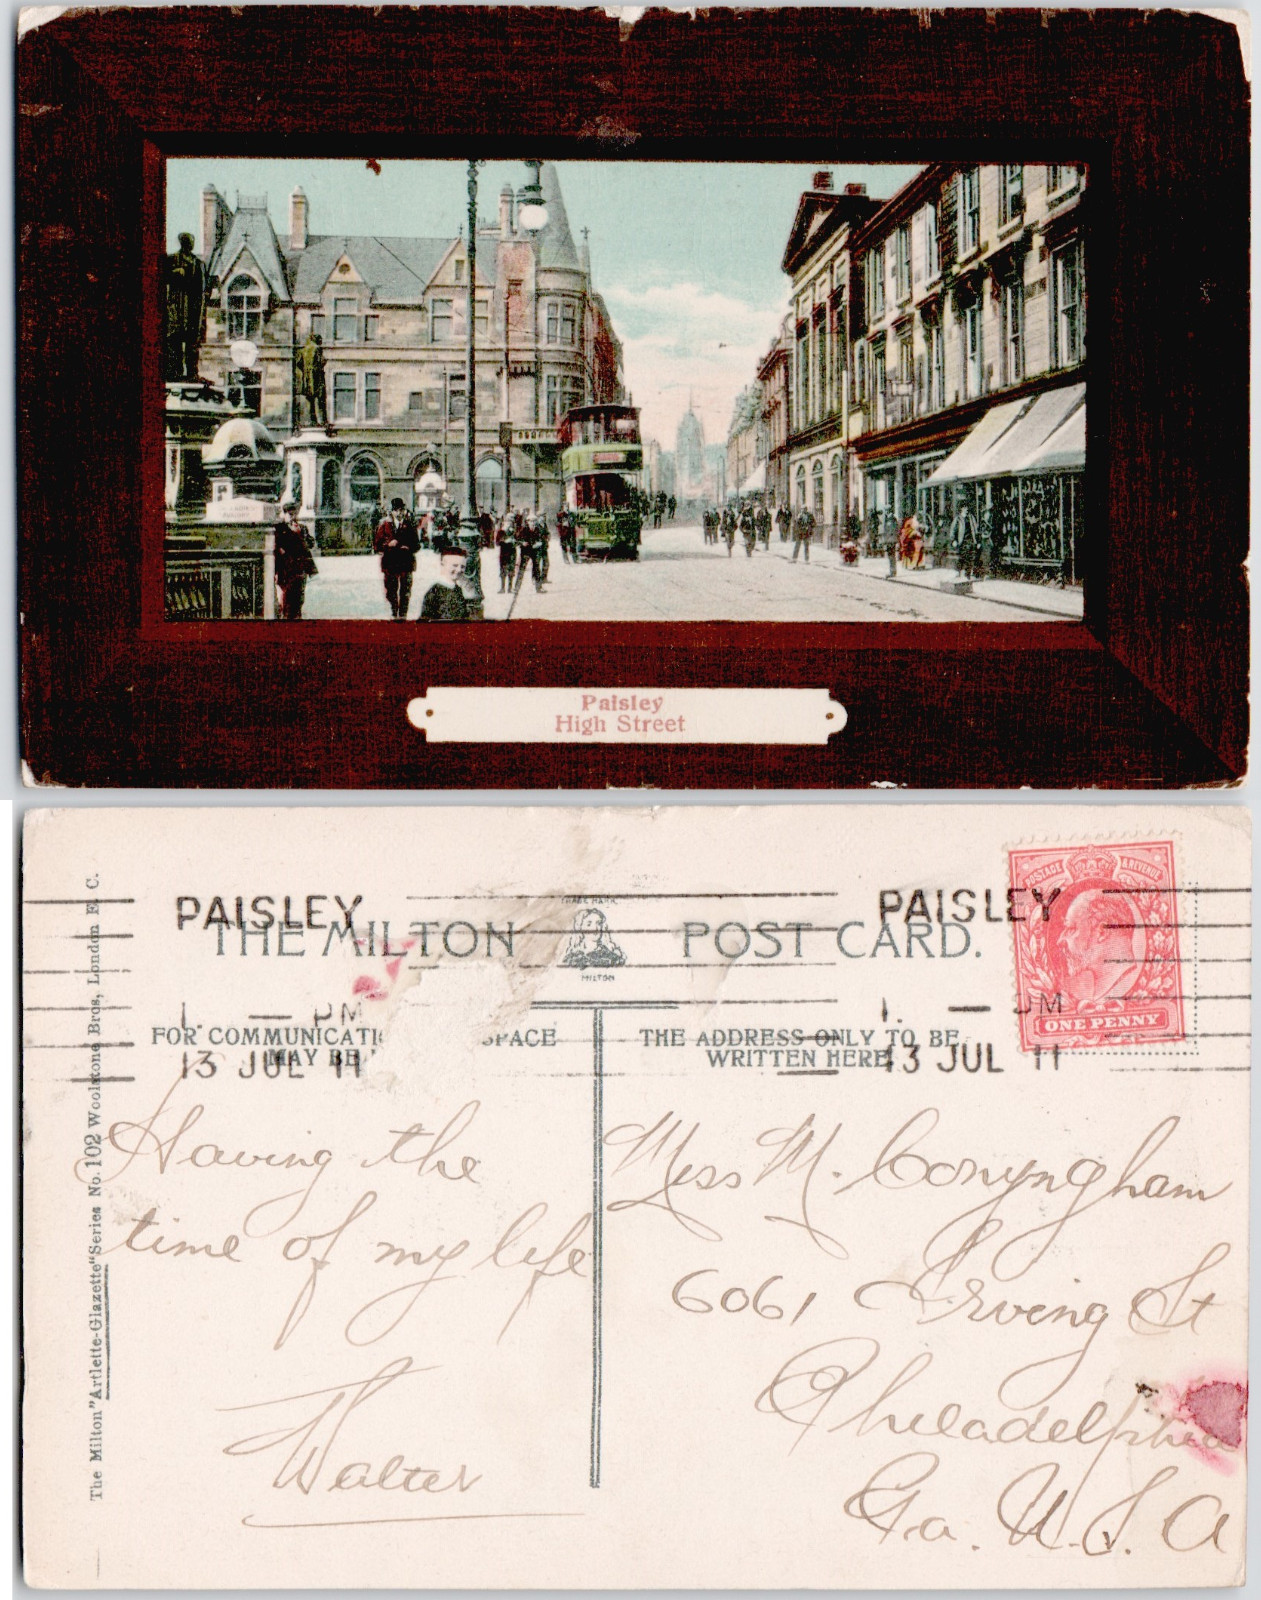 Paisley
High Street
PAISLEY
PAISLEY
POSTAGE & REVENUE
TRADE MARK
THE MILTON POST CARD.
MILTON
1. — PM
1. — PM
ONE PENNY
FOR COMMUNICATI SPACE
MAY BE
THE ADDRESS ONLY TO BE
WRITTEN HERE
13 JUL 11
13 JUL 11
Having the
time of my life
Walter
Miss M. Conyngham
6061 Irving St
Philadelphia
Pa. U.S.A
The Milton "Artlette-Glazette" Series No. 102 Woolstone Bros, London E. C.